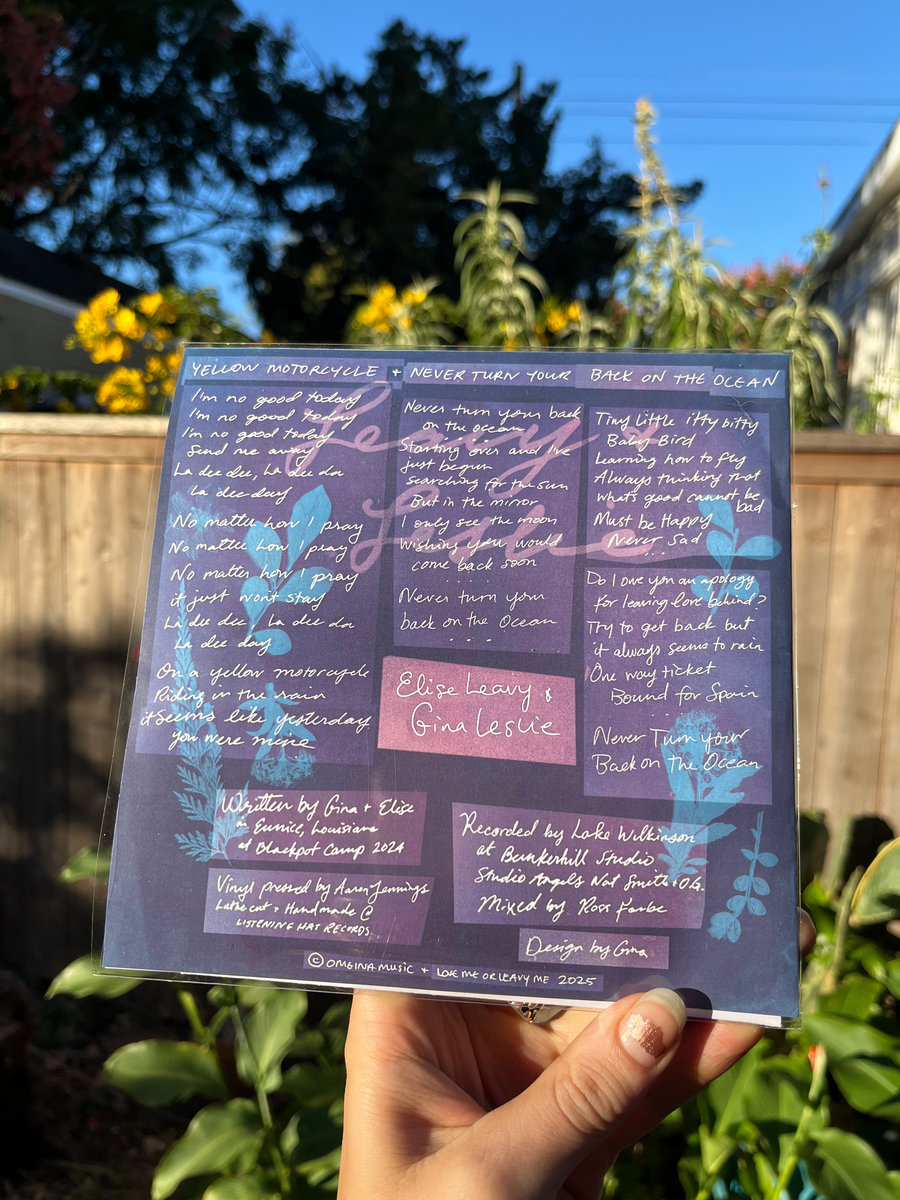 YELLOW MOTORCYCLE + NEVER TURN YOUR BACK ON THE OCEAN
I'm no good today
I'm no good today
I'm no good today
Send me away
La dee dee, La dee da
La dee day
No matter how I pray
No matter how I pray
No matter how I pray
it just wont stay
La dee dee, La dee da
La dee day
On a yellow motorcycle
Riding in the rain
it seems like yesterday
you were mine
Never turn your back
on the ocean
Starting over and I've
just begun
searching for the sun
But in the mirror
I only see the moon
Wishing you would
come back soon
. . . .
Never turn your
back on the Ocean
. . . .
Tiny little itty bitty
Baby Bird
Learning how to fly
Always thinking that
whats good cannot be
bad
Must be Happy
Never Sad
. . .
Do I owe you an apology
for leaving love behind?
Try to get back but
it always seems to rain
One way ticket
Bound for Spain
Never Turn your
Back on the Ocean
Leavy &
Leslie
Elise Leavy &
Gina Leslie
Written by Gina + Elise
in Eunice, Louisiana
at Blackpot Camp 2024
Vinyl pressed by Aaron Jennings
Lathe cut + Handmade @
LISTENING HAT RECORDS
Recorded by Lake Wilkinson
at Bunkerhill Studio
Studio Angels Nat Smith + O.G.
Mixed by Ross Farbe
Design by Gina
© OMGINA MUSIC + LOVE ME OR LEAVY ME 2025